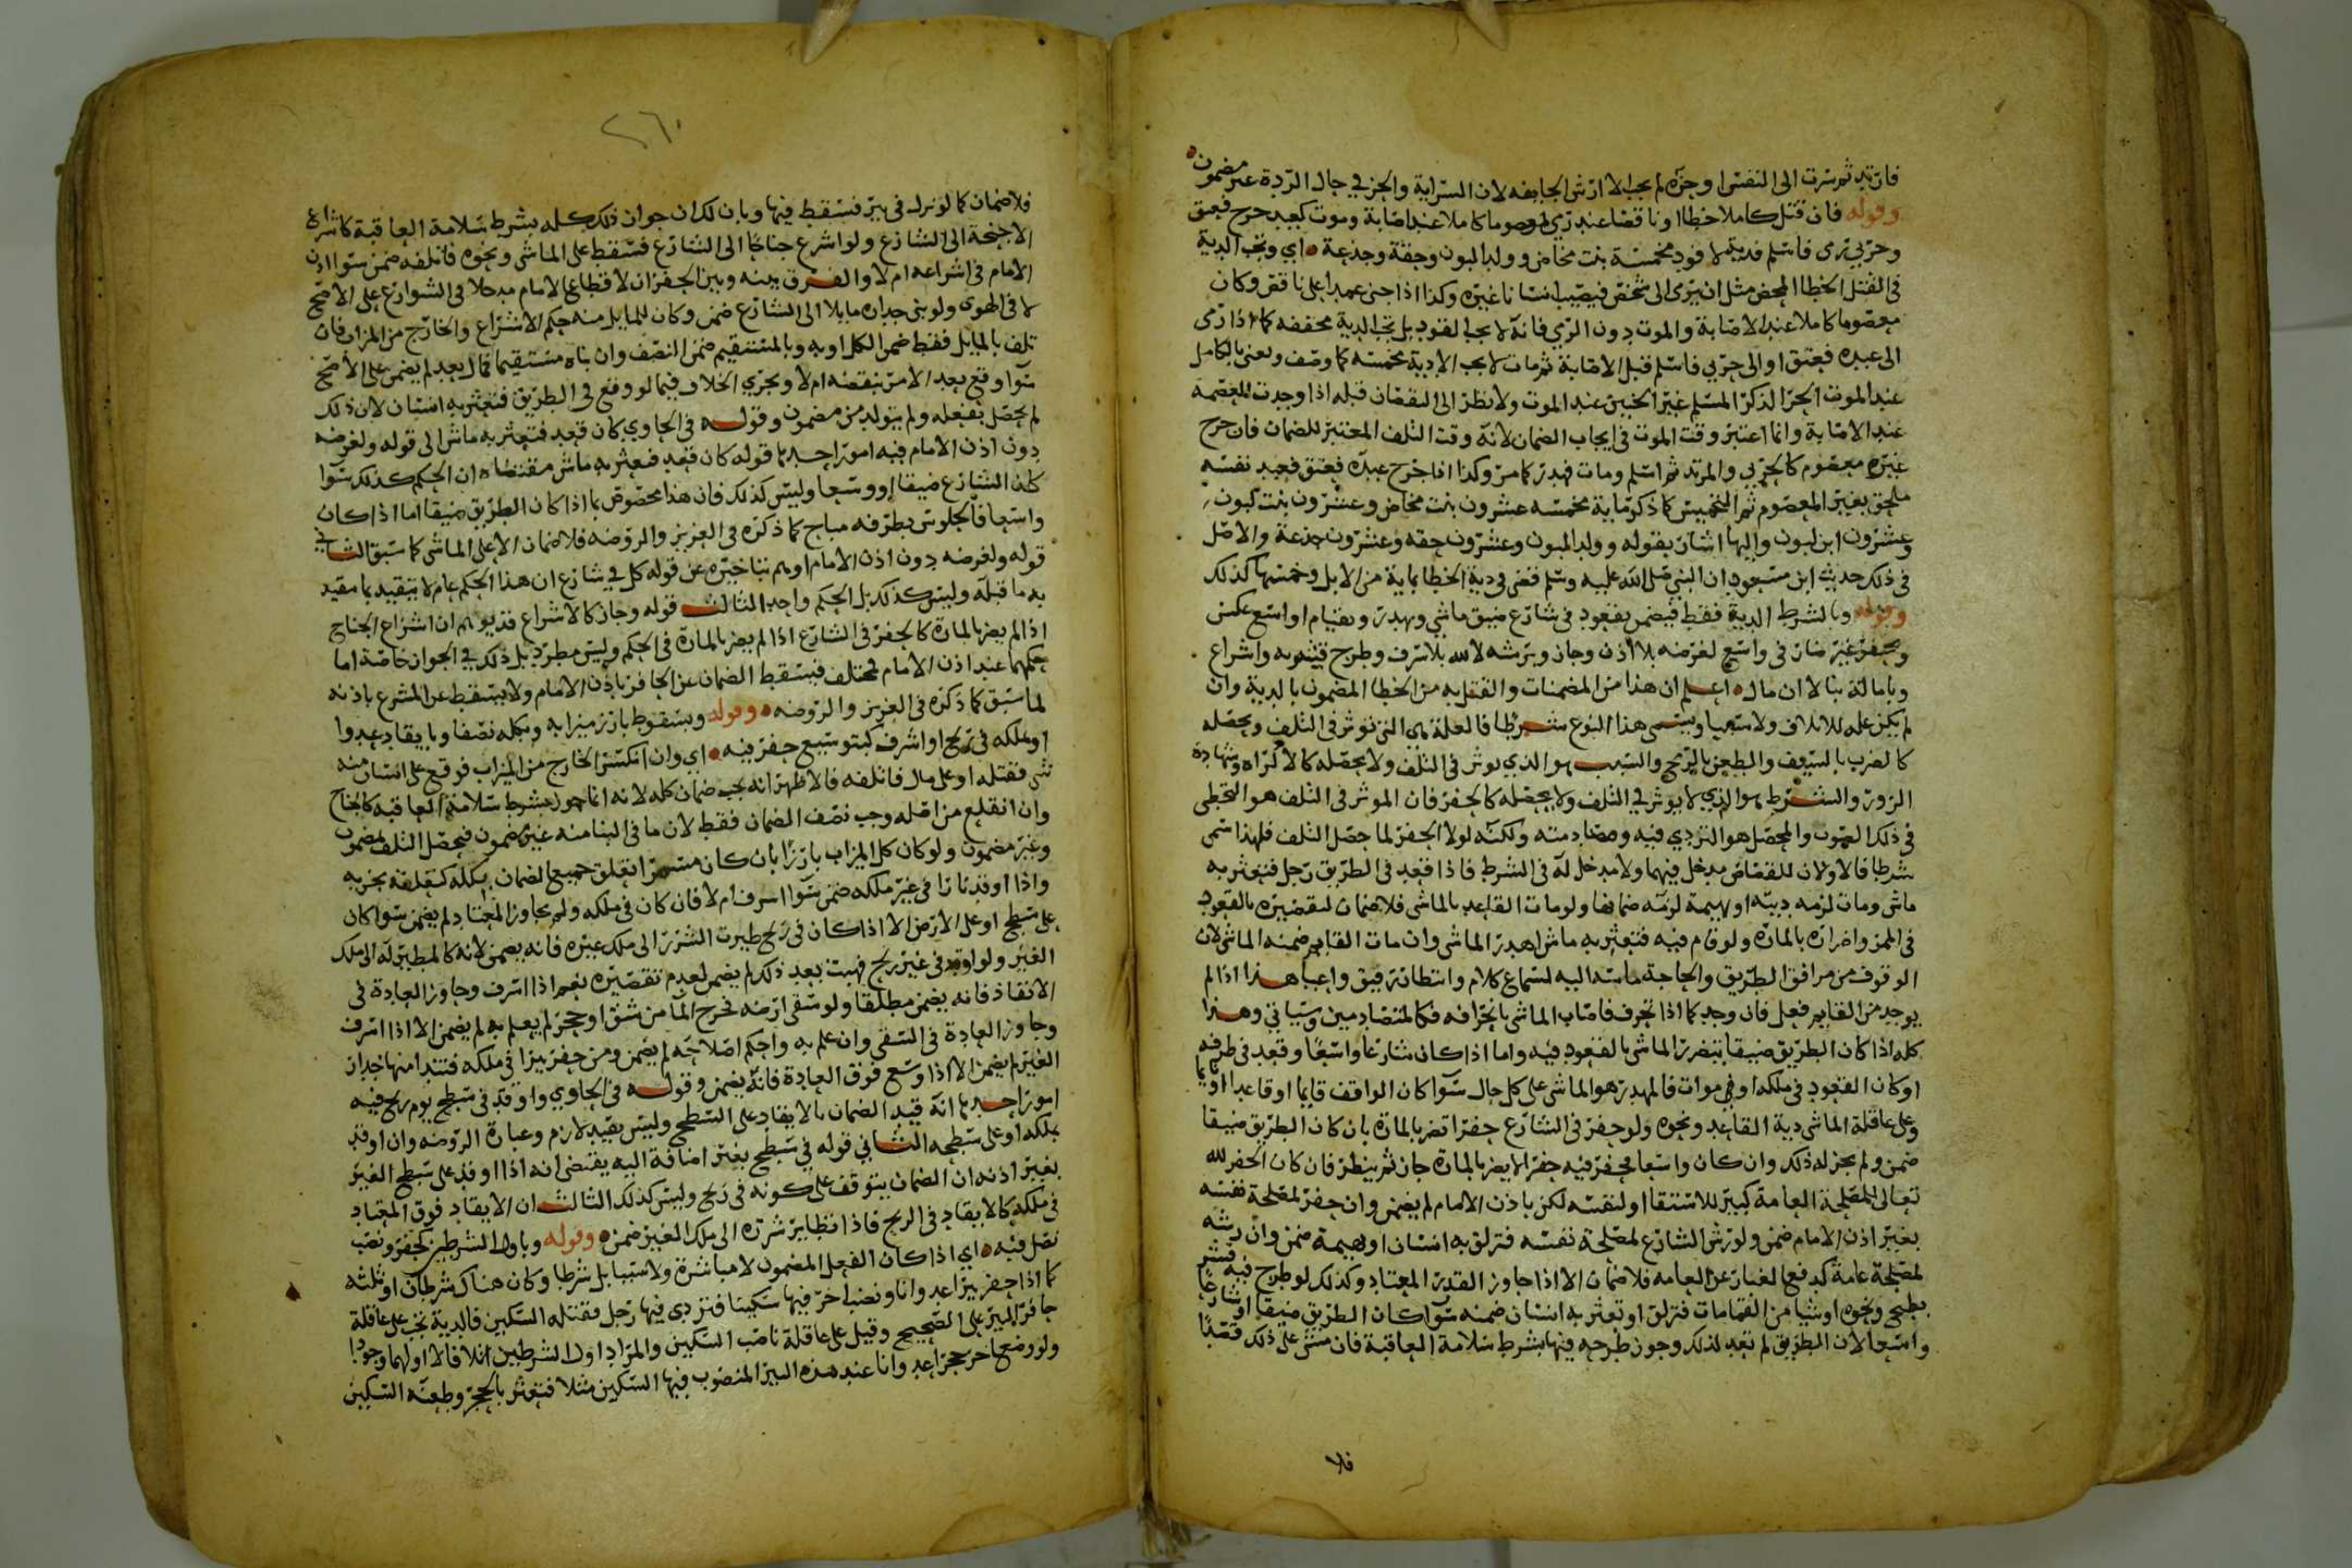 فارتد ثم سرت الى النفس او جزه لم يجب الا ارش الجايفه لان السراية والجز في حال الردة غير مضمون
وقوله فان قتل كاملا خطا او ناقصا عبد رمي لمعصوما كاملا عند اصابة وموت كعبد جرح فعتق
وحربي رمى فاسلم فدية لا قود مخمسة بنت مخاض وولد البون وحقة وجذعة اي وتجب الدية
في القتل الخطا المحض مثل ان يرمى الى شخص فيصيب انسانا غيره وكذا اذا جنى عمدا على ناقص وكان
معصوما كاملا عند الاصابة والموت دون الرمي فانه لا يجب القود بل تجب الدية مخففه كما اذا رمى
الى عبده فعتق او الى حربي فاسلم قبل الاصابة ثم مات لا يجب الا دية مخمسه كما وصف ويعنى بالكامل
عند الموت الحر الذكر المسلم غير الجنين عند الموت ولا نظر الى النقصان قبله اذا وجدت للعصمة
عند الاصابة وانما اعتبر وقت الموت في ايجاب الضمان لانه وقت التلف المعتبر للضمان فان جرح
غيره معصوم كالحربي والمرتد ثم اسلم ومات فهدر كما مر وكذا اذا جرح عبده فعتق فعبد نفسه
ملحق بغير المعصوم ثم التخميس كما ذكر ماية مخمسه عشرون بنت مخاض وعشرون بنت لبون
وعشرون ابن لبون واليها اشار بقوله وولد المبون وعشرون حقه وعشرون جذعة والاصل
في ذلك حديث ابن مسعود ان النبي صلى الله عليه وسلم قضى في دية الخطا بماية من الابل وخمسها كذلك
وقوله وبالشرط الدية فقط فيضمن بقعود في شارع ضيق ماشي ويهدر وبقيام او اسع عكس
وبحفر غير ضار في واسع لغرضه بلا اذن وجاز وبرشه لا لله بلا سرف وطرح قشر به واشراع
وبامالة بنا لا ان مال اعلم ان هذا من المضمنات والقتل به من الخطا المضمون بالدية وان
لم يكن علة للاتلاف ولا سببا ويسمى هذا النوع شرطا فالعلة هي التي توثر في التلف وتحصله
كالضرب بالسيف والطعن بالرمح والسبب هو الذي يوثر في التلف ولا يحصله كالاكراه وشهادة
الزور والشرط هو الذي لا يوثر في التلف ولا يحصله كالحفر فان الموثر في التلف هو التخطي
في ذلك الصوب والمحصل هو التردي فيه ومصادمته ولكنه لولا الحفر لما حصل التلف فلهذا سمى
شرطا فالاولان للقصاص مدخل فيهما ولا مدخل له في الشرط فاذا قعد في الطريق رجل فتعثر به
ماشى ومات لزمه ديته او بهيمة لزمه ضمانها ولو مات القاعد بالماشى فلا ضمان لتقصيره بالقعود
في الممر واضراره بالمارة ولو قام فيه فتعثر به ماش اهدر الماشى وان مات القايم ضمنه الماشى لان
الوقوف من مرافق الطريق والحاجة ماسه اليه لسماع كلام وانتظار رفيق واعيا هذا اذا لم
يوجد من القايم فعل فان وجد كما اذا تحرف فاصاب الماشى بانحرافه فكالمتصادمين وسياتي وهذا
كله اذا كان الطريق ضيقا يتضرر الماشى بالقعود فيه واما اذا كان شارعا واسعا وقعد في طرفه
او كان القعود في ملكه او في موات فالمهدر هو الماشى على كل حال سوا كان الواقف قايما او قاعدا او نايما
وعلى عاقلة الماشى دية القاعد ونحوه ولو حفر في الشارع حفرا تضر بالمارة بان كان الطريق ضيقا
ضمن ولم يجز له ذلك وان كان واسعا فحفر فيه حفرا لا يضر بالمارة جاز ثم ينظر فان كان الحفر لله
تعالى للمصلحة العامة كبير للاستقا او لنفسه لكن باذن الامام لم يضمن وان حفر لمصلحة نفسه
بغير اذن الامام ضمن ولو رش الشارع لمصلحة نفسه فتزلق به انسان او بهيمة ضمن وان رشه
لمصلحة عامة كدفع الغبار عن العامه فلا ضمان الا اذا جاوز القدر المعتاد وكذلك لو طرح فيه قشر
بطيخ ونحوه او شيا من القمامات فتزلق او تعثر به انسان ضمنه سوا كان الطريق ضيقا او شارعا
واسعا لان الطريق لم تعد لذلك وجوز طرحه فيها بشرط سلامة العاقبة فان مشى على ذلك قصدا
فلا
٢٦٠
فلا ضمان كما لو نزل في بير فسقط فيها وبان لك ان جواز ذلك كله بشرط سلامة العاقبة كاشراع
الاجنحة الى الشارع ولو اشرع جناحا الى الشارع فسقط على الماشى ونحوه فاتلفه ضمن سوا اذن
الامام في اشراعه ام لا والفرق بينه وبين الحفر ان لاقطاع الامام مدخلا في الشوارع على الاصح
لا في الهوى ولو بنى جداره مايلا الى الشارع ضمن وكان للمايل منه حكم الاشراع والخارج من المزاب فان
تلف بالمايل فقط ضمن الكل او به وبالمستقيم ضمن النصف وان بناه مستقيما فمال بعد لم يضمن على الاصح
سوا وقع بعد الامر بنقضه ام لا ويجري الخلاف فيما لو وقع في الطريق فتعثر به انسان لان ذلك
لم يحصل بفعله ولم يتولد من مضمون وقوله في الحاوي كان قعد فتعثر به ماش الى قوله ولغرضه
دون اذن الامام فيه امور احدها قوله كان قعد فعثر به ماش مقتضاه ان الحكم كذلك سوا
كان الشارع ضيقا او وسعا وليس كذلك فان هذا مخصوص بما اذا كان الطريق ضيقا اما اذا كان
واسعا فالجلوس بطرفه مباح كما ذكره في العزيز والروضه فلا ضمان الا على الماشى كما سبق الثاني
قوله ولغرضه دون اذن الامام اوهم بتاخيره عن قوله كل في شارع ان هذا الحكم عام لا يتقيد بما قيد
به ما قبله وليس كذلك بل الحكم واحد الثالث قوله وجاز كالاشراع قد يوهم ان اشراع الجناح
اذا لم يضر بالمارة كالحفر في الشارع اذا لم يضر بالمارة في الحكم وليس مطرد بل ذلك في الجواز خاصة اما
حكمهما عند اذن الامام فمختلف فيسقط الضمان عن الحافر باذن الامام ولا يسقط عن المشرع باذنه
لما سبق كما ذكره في العزيز والروضه وقوله وبسقوط بارز ميزابه وبكله نصفا وبايقاد عدوا
او بملكه في ريح او اشرف كبتوسيع حفر فيه اي وان انكسر الخارج من الميزاب فوقع على انسان منه
شى فقتله او على مال فاتلفه فالاظهر انه يجب ضمان كله لانه انما جوز بشرط سلامة العاقبة كالجناح
وان انقلع من اصله وجب نصف الضمان فقط لان ما في البنا منه غير مضمون فيحصل التلف بمضمون
وغير مضمون ولو كان كل الميزاب بارزا بان كان مسمرا تعلق جميع الضمان بكله كتعلقه بجزيه
واذا اوقد نارا في غير ملكه ضمن سوا اسرف ام لا فان كان في ملكه ولم يجاوز المعتاد لم يضمن سوا كان
على سطح او على الارض الا اذا كان في ريح طيرت الشرر الى ملك غيره فانه يضمن لانه كالمطير له الى ملك
الغير ولو اوقد في غير ريح فهبت بعد ذلك لم يضمن لعدم تقصيره نعم اذا اسرف وجاوز العادة في
الايقاد فانه يضمن مطلقا ولو سقى ارضه فخرج الما من شق او جحر لم يعلم به لم يضمن الا اذا اسرف
وجاوز العادة في السقى وان علم به واحكم اصلاحه لم يضمن ومن حفر بيرا في ملكه فتندا منها جدار
الغير لم يضمن الا اذا وسع فوق العادة فانه يضمن وقوله في الحاوي واوقد في سطح يوم ريح فيه
امور احدها انه قيد الضمان بالايقاد على السطح وليس بقيد لازم وعبارة الروضه وان اوقد
بملكه او على سطحه الثاني قوله في سطح بغير اضافة اليه يقتضى انه اذا اوقد على سطح الغير
بغير اذنه ان الضمان يتوقف على كونه في ريح وليس كذلك الثالث ان الايقاد فوق المعتاد
في ملكه كالايقاد في الريح فاذا تطاير شرره الى ملك الغير ضمن وقوله وباول الشرطين كحفر ونصب
نصل فيه اي اذا كان الفعل المضمون لا مباشرة ولا سببا بل شرطا وكان هناك شرطان او ثلثه
كما اذا حفر بيرا عدوانا ونصب اخر فيها سكينا فتردى فيها رجل فقتله السكين فالدية تجب على عاقلة
حافر البير على الصحيح وقيل على عاقلة ناصب السكين والمراد اول الشرطين اتلافا لا اولهما وجودا
ولو وضع اخر حجرا عدوانا عند هذه البير المنصوب فيها السكين مثلا فتعثر بالحجر وطعنه السكين